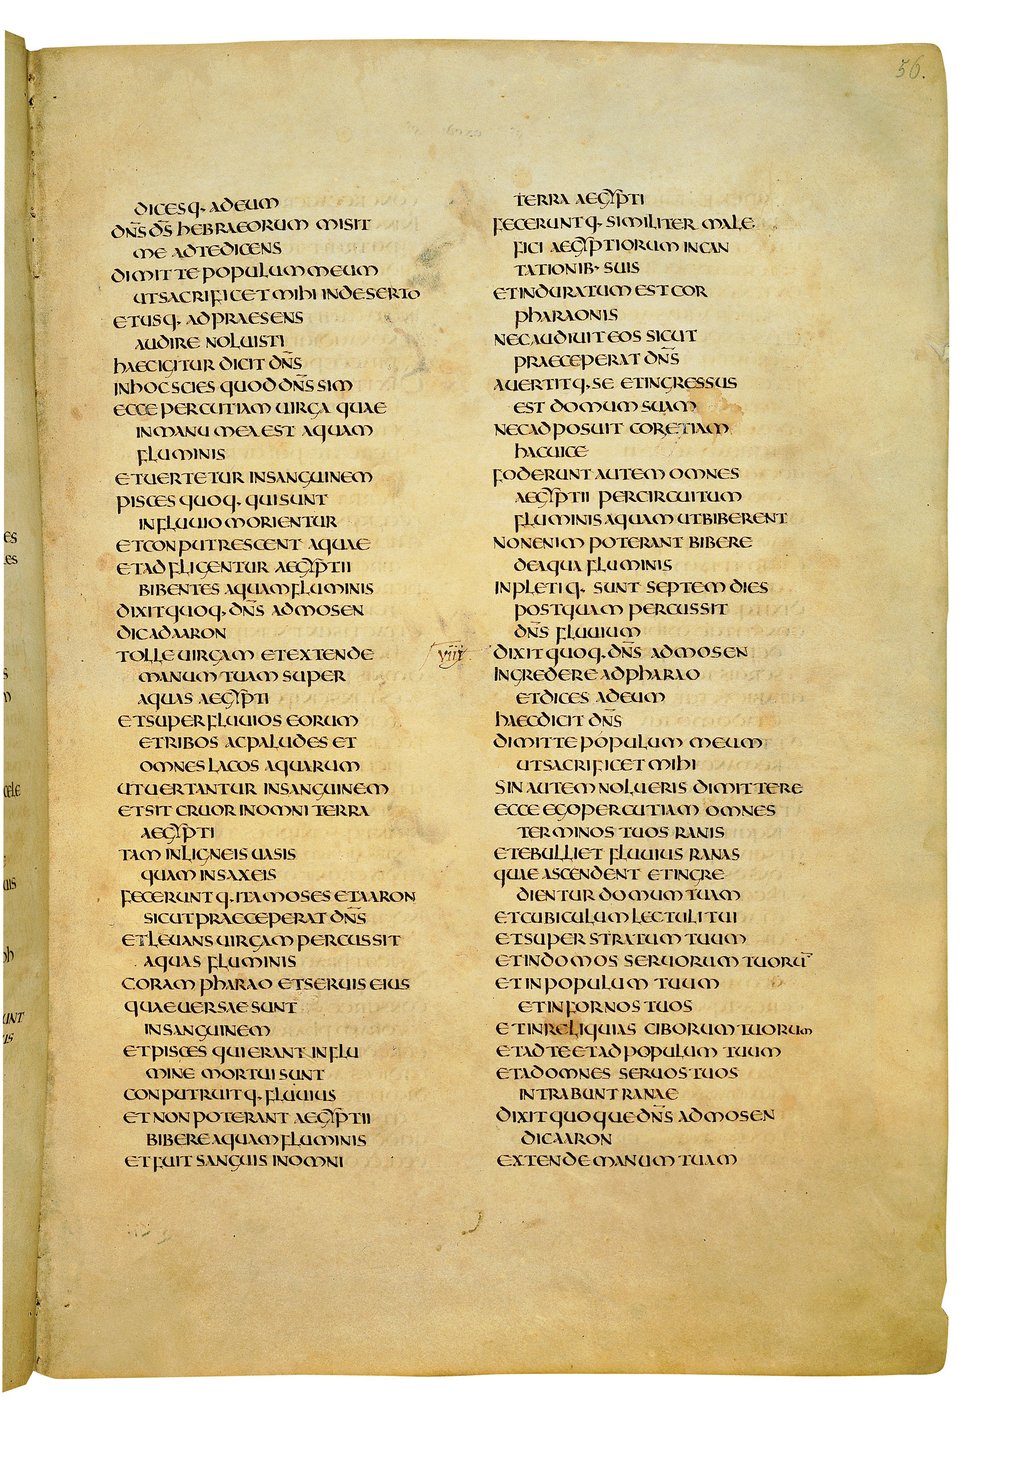 56.
dicesq· adeum
dn̄s d̄s hebraeorum misit
me adtedicens
dimitte populum meum
utsacrificet mihi indeserto
etusq· adpraesens
audire noluisti
haecigitur dicit dn̄s
inhoc scies quod dn̄s sim
ecce percutiam uirga quae
inmanu mea est aquam
fluminis
etuertetur insanguinem
pisces quoq· quisunt
influuio morientur
etconputrescent aquae
etadfligentur aegyptii
bibentes aquamfluminis
dixitquoq· dn̄s admosen
dicadaaron
tolle uirgam etextende
manum tuam super
aquas aegypti
etsuperfluuios eorum
etribos acpaludes et
omnes lacos aquarum
utuertantur insanguinem
etsit cruor inomni terra
aegypti
tam inligneis uasis
quam insaxeis
feceruntq· itamoses etaaron
sicutpraeceperat dn̄s
etleuans uirgam percussit
aquas fluminis
coram pharao etseruis eius
quaeuersaesunt
insanguinem
etpisces quierant influ
mine mortuisunt
conputruitq· fluuius
etnonpoterant aegyptii
bibere aquamfluminis
etfuit sanguis inomni
terra aegypti
feceruntq· similiter male
fici aegyptiorum incan
tationib· suis
etinduratum estcor
pharaonis
necaudiuit eos sicut
praeceperat dn̄s
auertitq· se etingressus
est domum suam
necadposuit coretiam
hacuice
foderunt autem omnes
aegyptii percircuitum
fluminis aquam utbiberent
nonenim poterant bibere
deaqua fluminis
inpletiq· sunt septem dies
postquam percussit
dn̄s fluuium
viiī dixitquoq· dn̄s admosen
ingredere adpharao
etdices adeum
haecdicit dn̄s
dimitte populum meum
utsacrificet mihi
sinautem nolueris dimittere
ecce egopercutiam omnes
terminos tuos ranis
etebulliet fluuius ranas
quae ascendent etingre
dientur domum tuam
etcubiculum lectuli tui
etsuper stratum tuum
etindomos seruorum tuorū
etinpopulum tuum
etinfornos tuos
etinreliquias ciborum tuorum
etadteetad populum tuum
etadomnes seruos tuos
intrabunt ranae
dixitquoque dn̄s admosen
dicaaron
extende manum tuam